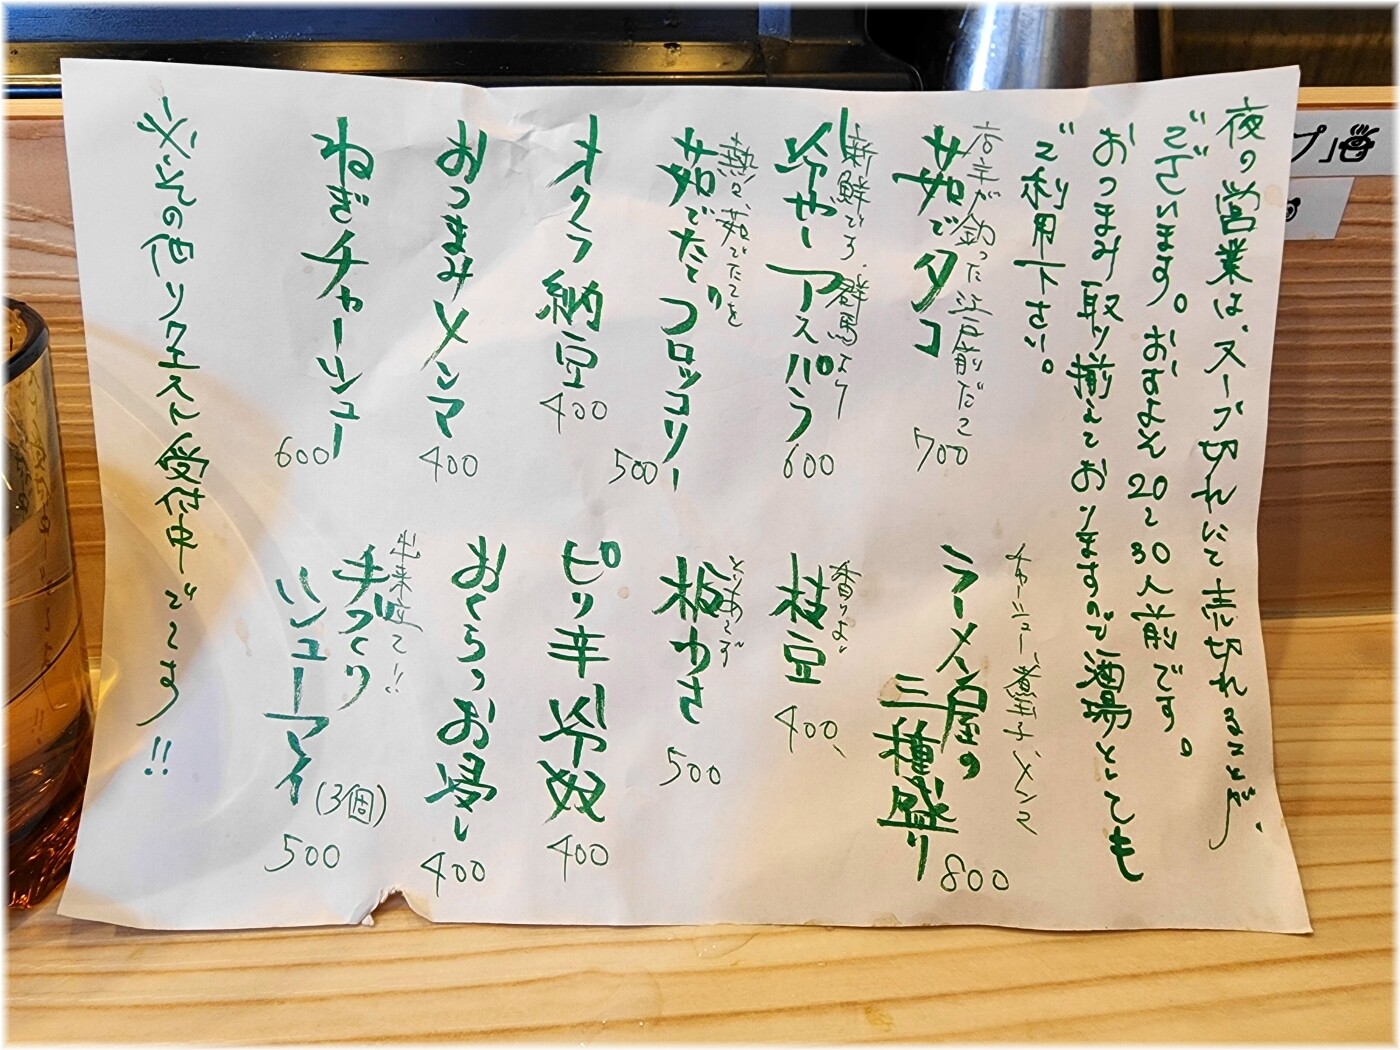 夜の営業は、スープ切れにて売切れることが、
ございます。おおよそ20〜30人前です。
おつまみ取り揃えておりますので酒場としても
ご利用下さい。
店主が釣った江戸前だこ
茹でタコ
700
新鮮です。群馬より
冷やしアスパラ
600
熱々、茹でたてを
茹でたてブロッコリー
500
オクラ納豆
400
おつまみメンマ
400
ねぎチャーシュー
600
チャーシュー、煮玉子、メンマ
ラーメン屋の
三種盛り
800
香りよい
枝豆
400
とりあえず
板わさ
500
ピリ辛冷奴
400
おくらのお浸し
400
出来立て!!
手づくり
シューマイ
(3個)
500
※その他リクエスト受付中です!!
プ」